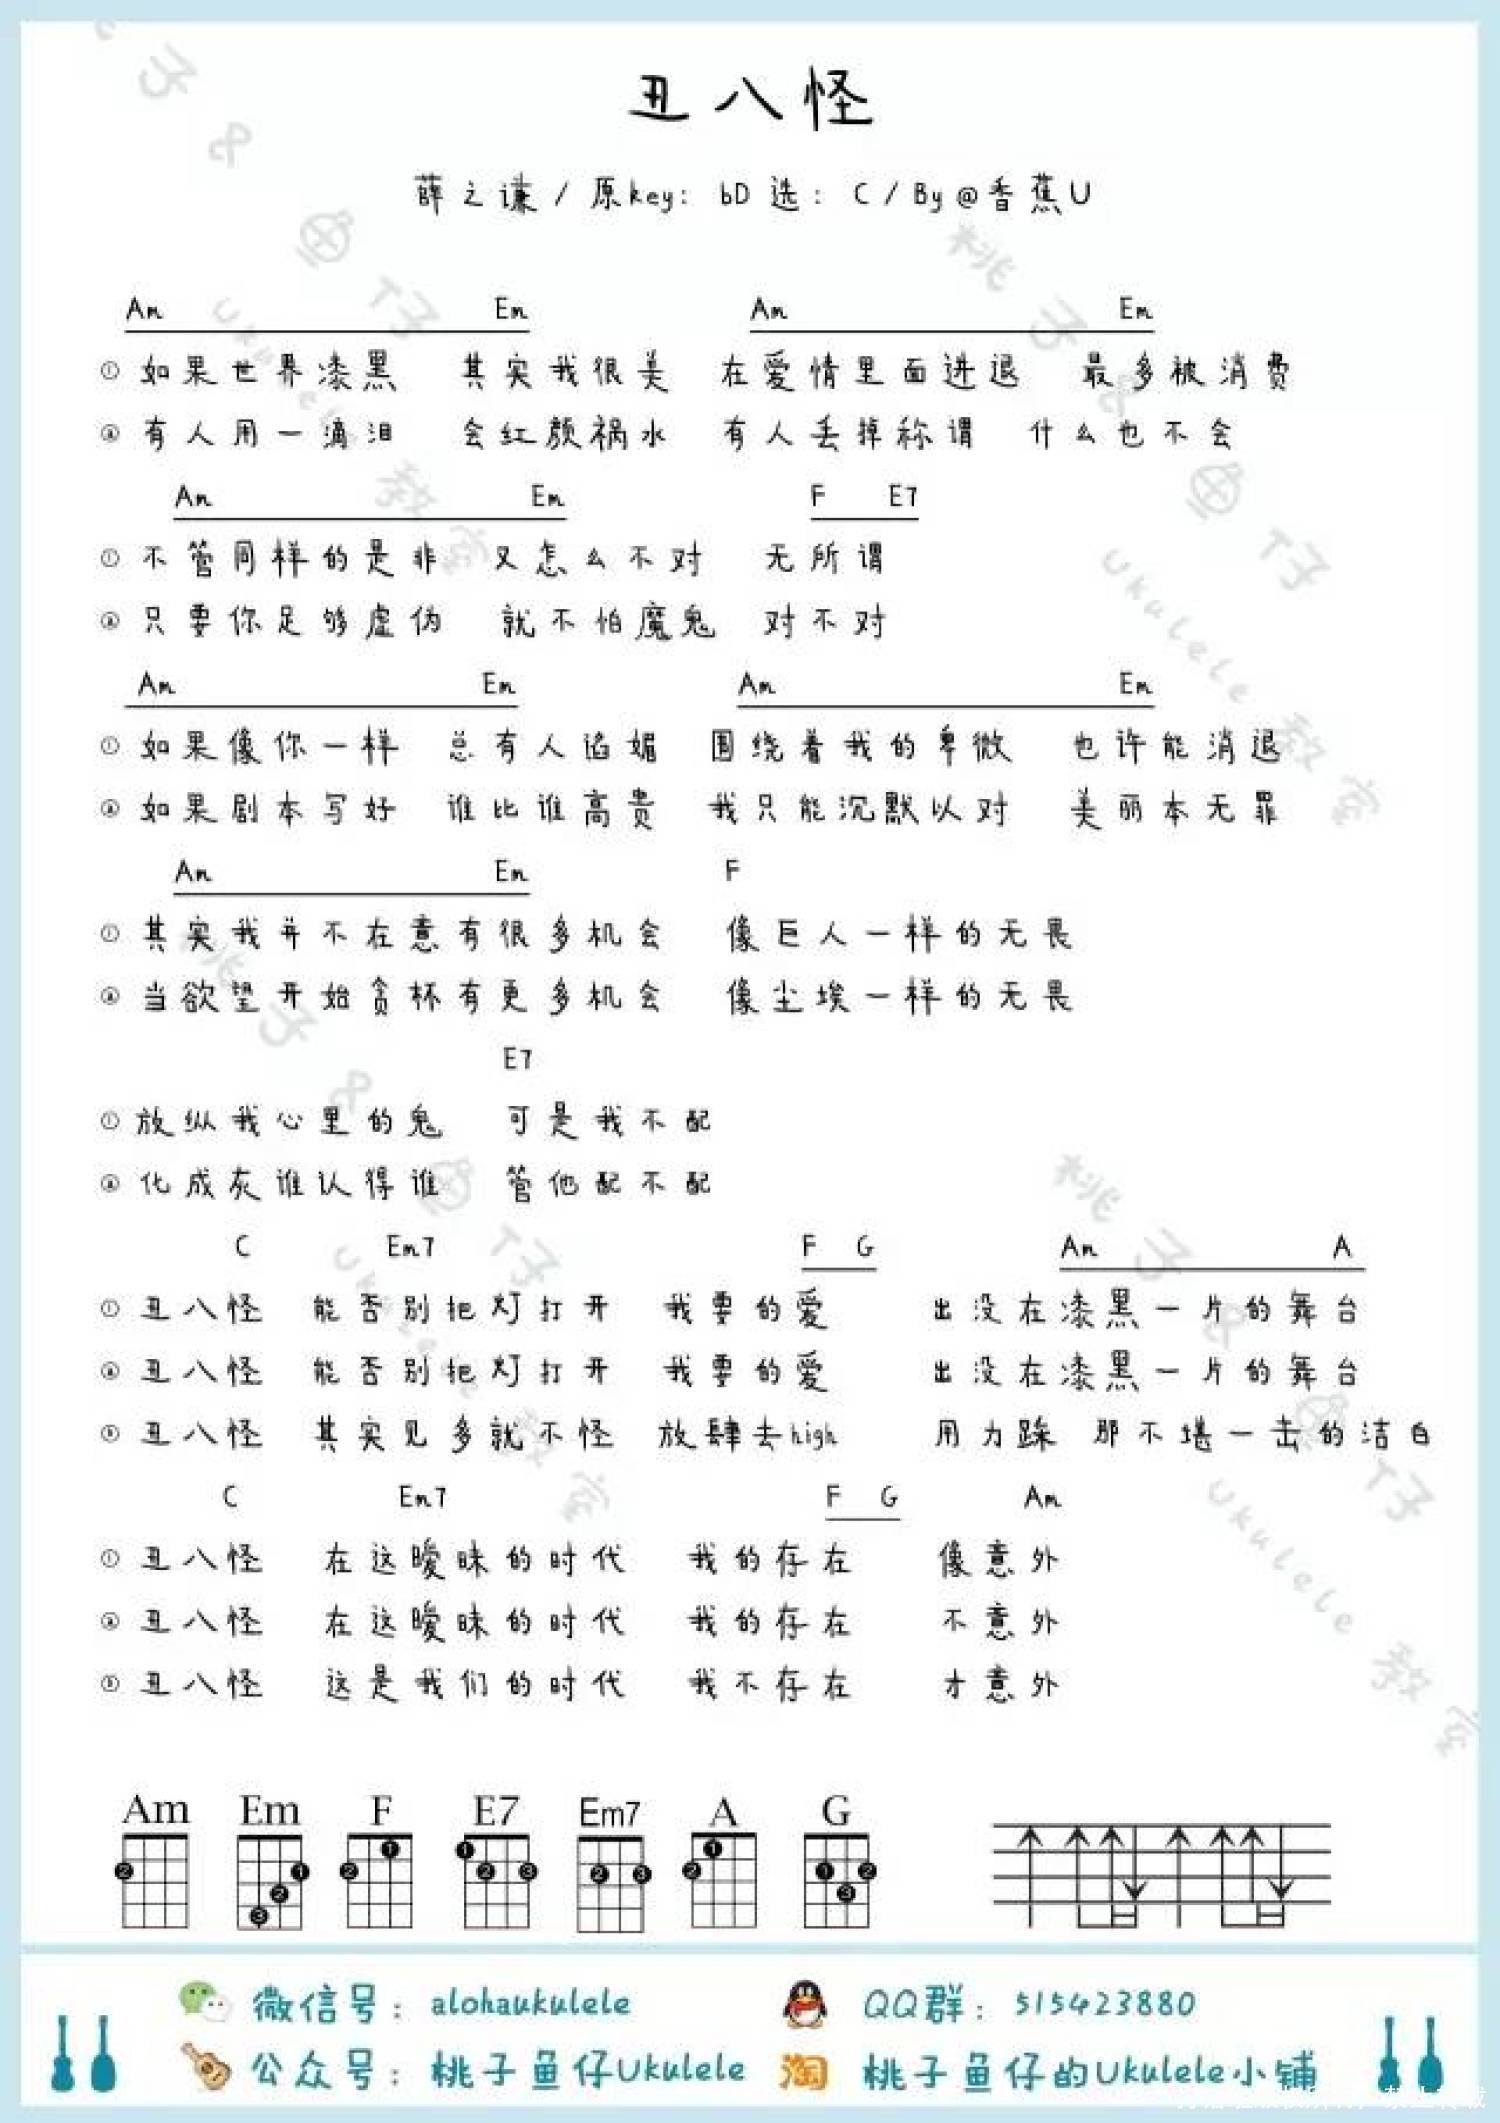 丑八怪
薛之谦 / 原key: bD 选: C / By@香蕉U
Am Em Am Em
① 如果世界漆黑 其实我很美 在爱情里面进退 最多被消费
② 有人用一滴泪 会红颜祸水 有人丢掉称谓 什么也不会
Am Em F E7
① 不管同样的是非 又怎么不对 无所谓
② 只要你足够虚伪 就不怕魔鬼 对不对
Am Em Am Em
① 如果像你一样 总有人谄媚 围绕着我的卑微 也许能消退
② 如果剧本写好 谁比谁高贵 我只能沉默以对 美丽本无罪
Am Em F
① 其实我并不在意有很多机会 像巨人一样的无畏
② 当欲望开始贪杯有更多机会 像尘埃一样的无畏
E7
① 放纵我心里的鬼 可是我不配
② 化成灰谁认得谁 管他配不配
C Em7 F G Am A
① 丑八怪 能否别把灯打开 我要的爱 出没在漆黑一片的舞台
② 丑八怪 能否别把灯打开 我要的爱 出没在漆黑一片的舞台
③ 丑八怪 其实见多就不怪 放肆去high 用力踩 那不堪一击的洁白
C Em7 F G Am
① 丑八怪 在这暧昧的时代 我的存在 像意外
② 丑八怪 在这暧昧的时代 我的存在 不意外
③ 丑八怪 这是我们的时代 我不存在 才意外
Am Em F E7 Em7 A G
微信号: alohaukulele QQ群: 515423880
公众号: 桃子鱼仔Ukulele 淘 桃子鱼仔的Ukulele小铺
桃子&鱼仔
Ukulele教室